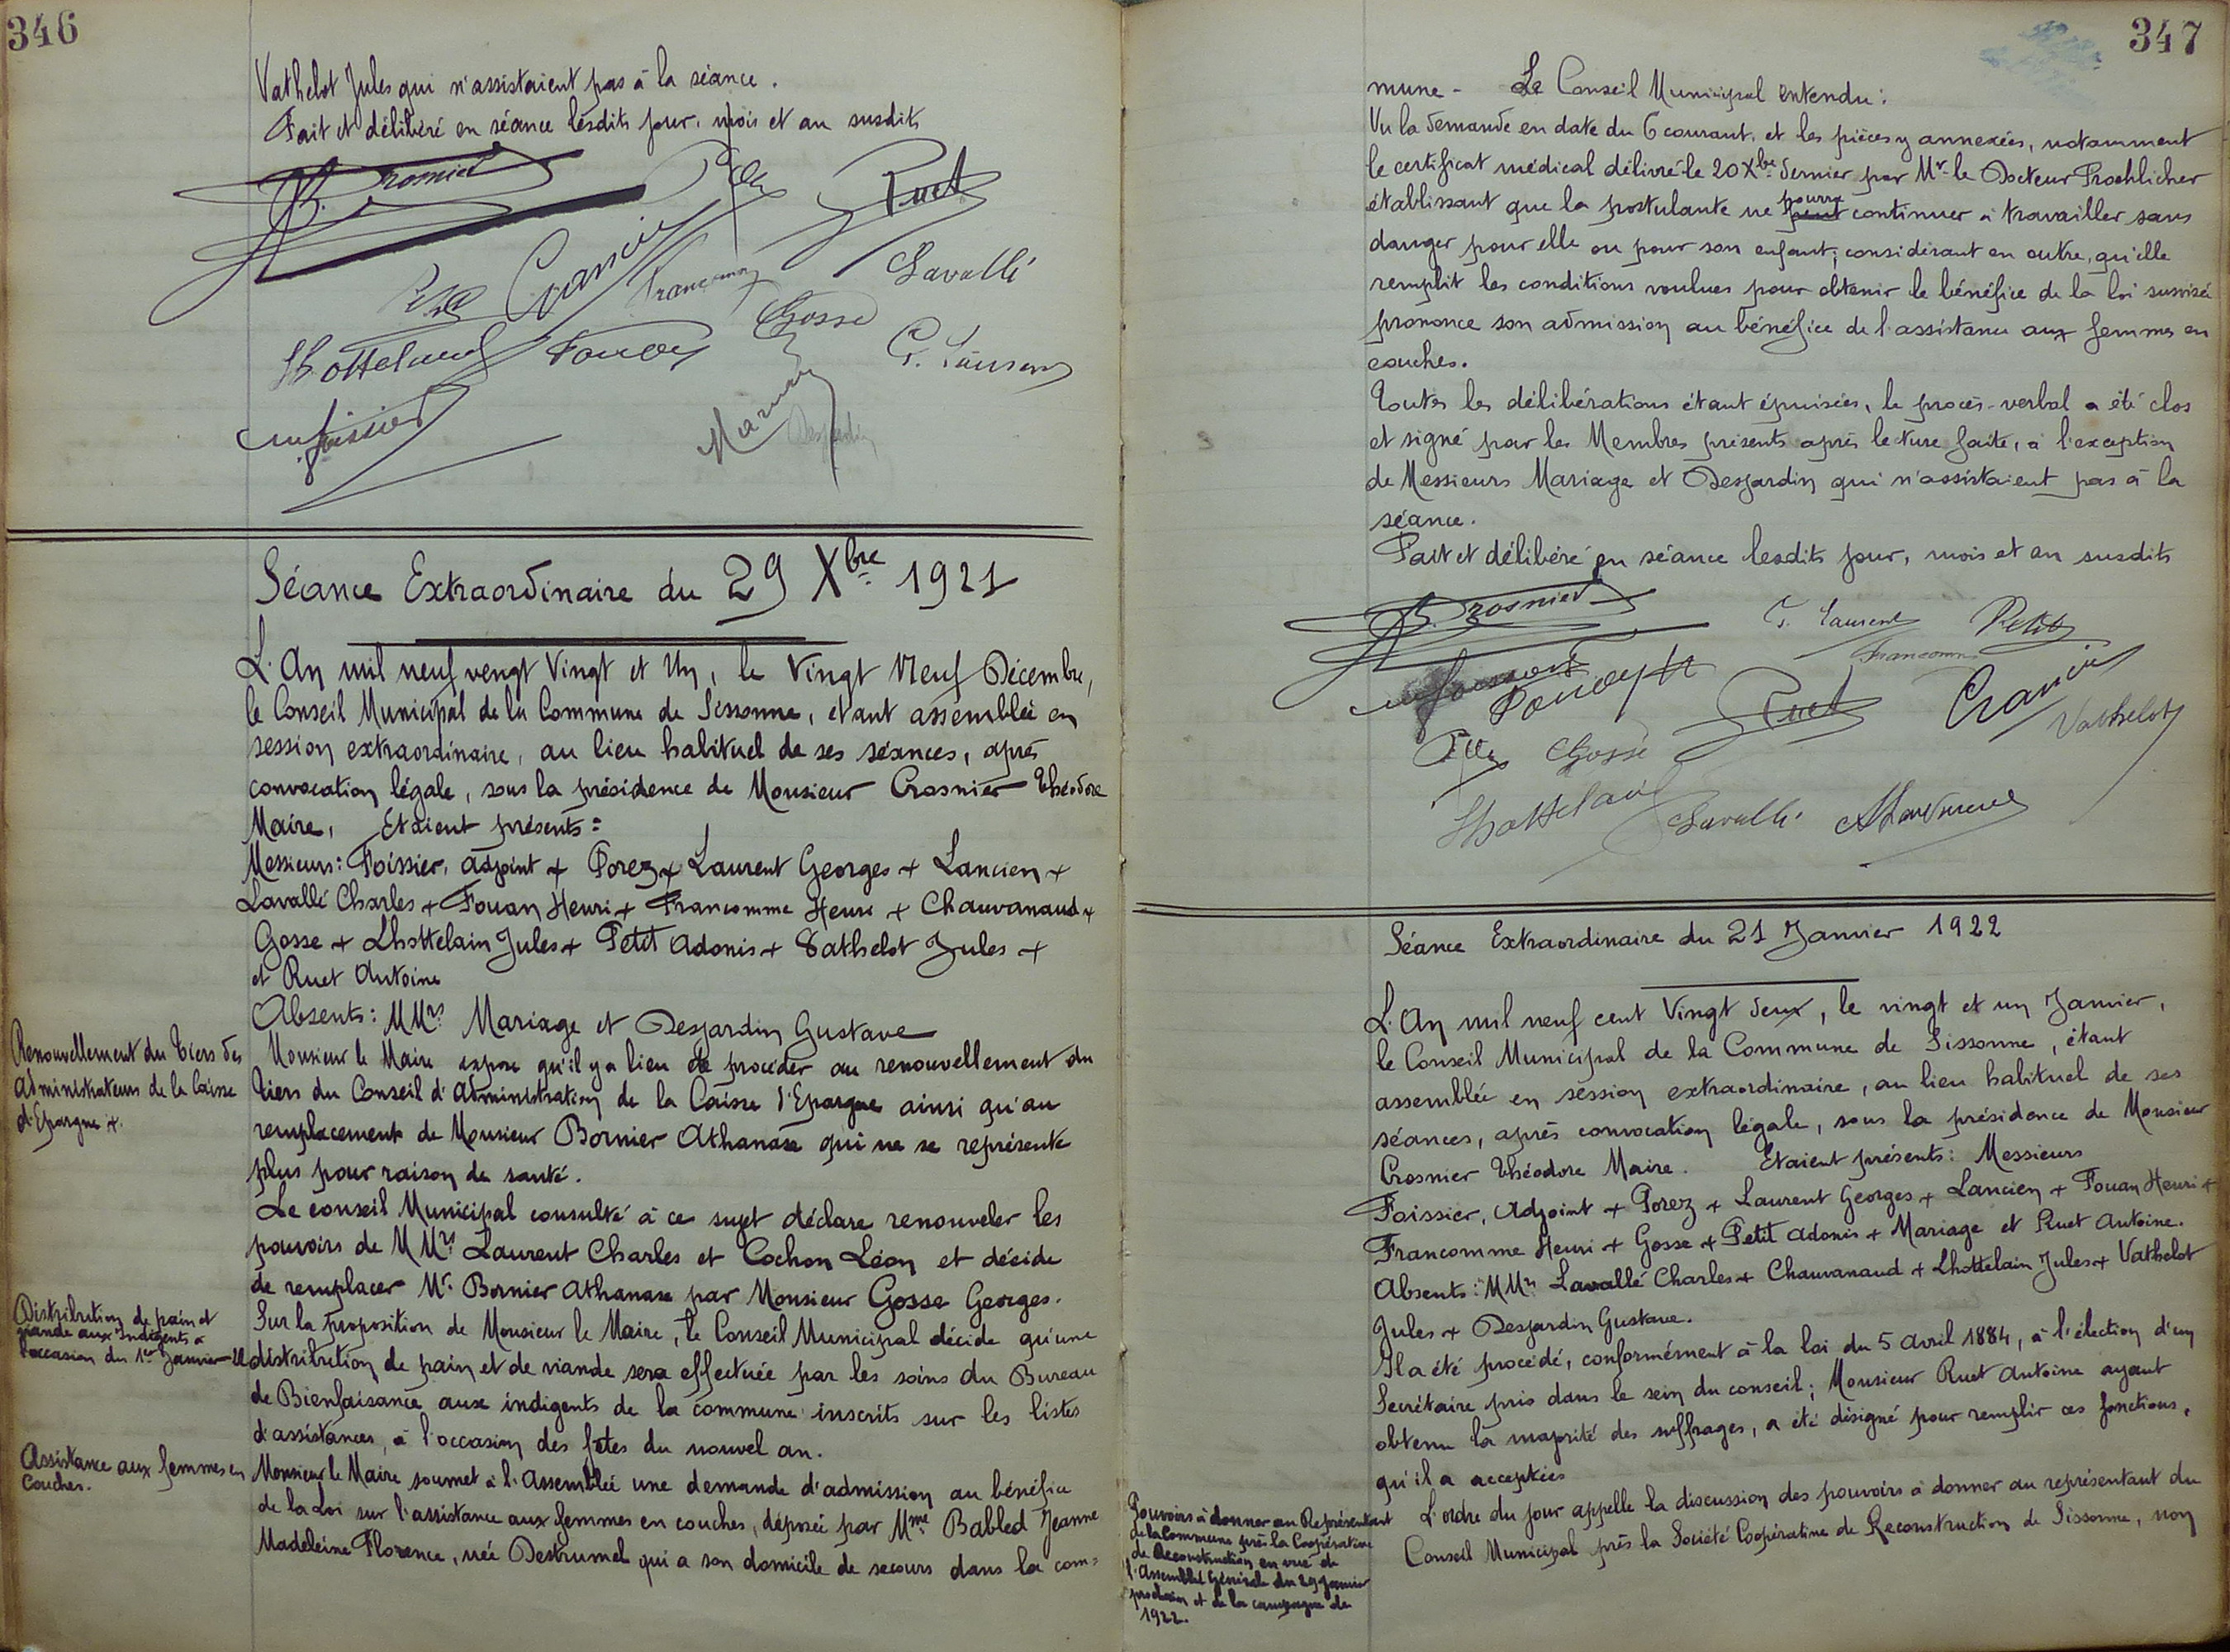 346
Vathelot Jules qui n'assistaient pas à la séance.
Fait et délibéré en séance lesdits jour, mois et an susdits
Crosnier
Ruet
Lancien
Francomme
Lavallé
Gosse
Lhottelain
Fouan
G. Laurent
Foissier
Mariage
Desjardin
Séance Extraordinaire du 29 Xbre 1921
L'An mil neuf vengt Vingt et Un, le Vingt Neuf Décembre,
le Conseil Municipal de la Commune de Sissonne, étant assemblée en
session extraordinaire, au lieu habituel de ses séances, après
convocation légale, sous la présidence de Monsieur Crosnier Théodore
Maire, Etaient présents =
Messieurs: Foissier, adjoint + Porez + Laurent Georges + Lancien +
Lavallé Charles + Fouan Henri + Francomme Henri + Chauvanaud +
Gosse + Lhottelain Jules + Petit Adonis + Vathelot Jules +
et Ruet Antoine
Absents: MMrs Mariage et Desjardin Gustave
Renouvellement du Tiers des
Administrateurs de la Caisse
d'Epargne +.
Monsieur le Maire expose qu'il y a lieu de procéder au renouvellement du
Tiers du Conseil d'Administration de la Caisse d'Epargne ainsi qu'au
remplacement de Monsieur Bornier Athanase qui ne se représente
plus pour raison de santé.
Le conseil Municipal consulté à ce sujet déclare renouveler les
pouvoirs de MMrs Laurent Charles et Cochon Léon et décide
de remplacer Mr. Bornier Athanase par Monsieur Gosse Georges.
Distribution de pain et
viande aux Indigents à
l'occasion du 1er Janvier 22
Sur la proposition de Monsieur le Maire, le Conseil Municipal décide qu'une
distribution de pain et de viande sera effectuée par les soins du Bureau
de Bienfaisance aux indigents de la commune inscrits sur les listes
d'assistances, à l'occasion des fêtes du nouvel an.
Assistance aux femmes en
Couches.
Monsieur le Maire soumet à l'Assemblée une demande d'admission au bénéfice
de la Loi sur l'assistance aux femmes en couches, déposée par Mme Babled Jeanne
Madeleine Florence, née Destrumel qui a son domicile de secours dans la com=
347
mune - Le Conseil Municipal entendu:
Vu la demande en date du 6 courant, et les pièces y annexées, notamment
le certificat médical délivré le 20 Xbre dernier par Mr le Docteur Froehlicher
établissant que la postulante ne peut pourra continuer à travailler sans
danger pour elle ou pour son enfant; considérant en outre, qu'elle
remplit les conditions voulues pour obtenir le bénéfice de la loi susvisée
prononce son admission au bénéfice de l'assistance aux femmes en
couches.
Toutes les délibérations étant épuisées, le procès-verbal a été clos
et signé par les Membres présents après lecture faite, à l'exception
de Messieurs Mariage et Desjardin qui n'assistaient pas à la
séance.
Fait et délibéré en séance lesdits jour, mois et an susdits
Crosnier
G. Laurent
Petit
Francomme
Foissier
Fouan H
Ruet
Lancien
Vathelot
Gosse
Lhottelain
Lavallé
Séance Extraordinaire du 21 Janvier 1922
L'An mil neuf cent Vingt deux, le vingt et un Janvier,
le Conseil Municipal de la Commune de Sissonne, étant
assemblée en session extraordinaire, au lieu habituel de ses
séances, après convocation légale, sous la présidence de Monsieur
Crosnier Théodore Maire. Etaient présents: Messieurs
Foissier, Adjoint + Porez + Laurent Georges + Lancien + Fouan Henri +
Francomme Henri + Gosse + Petit Adonis + Mariage et Ruet Antoine.
Absents: MMrs Lavallé Charles + Chauvanaud + Lhottelain Jules + Vathelot
Jules + Desjardin Gustave.
Il a été procédé, conformément à la loi du 5 Avril 1884, à l'élection d'un
Secrétaire pris dans le sein du conseil; Monsieur Ruet Antoine ayant
obtenu la majorité des suffrages, a été désigné pour remplir ces fonctions,
qu'il a acceptées
Pouvoirs à donner au Représentant
de la Commune près la Coopérative
de Reconstruction en vue de
l'Assemblée Générale du 29 Janvier
prochain et de la campagne de
1922.
L'ordre du jour appelle la discussion des pouvoirs à donner au représentant du
Conseil Municipal près la Société Coopérative de Reconstruction de Sissonne, non